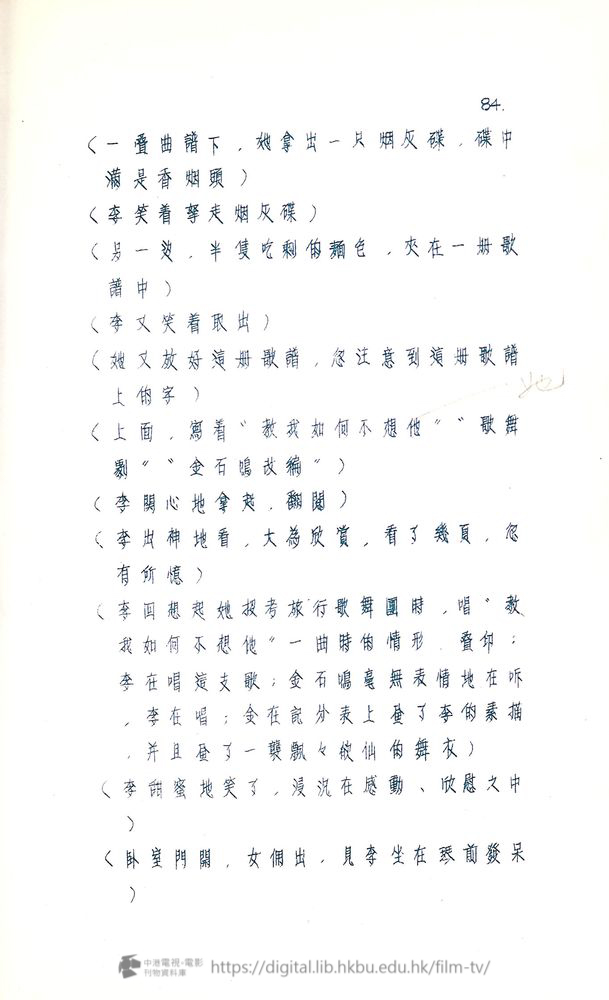 84.
（一疊曲譜下，她拿出一只烟灰碟，碟中
滿是香烟頭）
（李笑着拏走烟灰碟）
（另一边，半隻吃剩的麵包，夾在一册歌
譜中）
（李又笑着取出）
（她又放好這册歌譜，忽注意到這册歌譜
上的字）
她
（上面，寫着〝教我如何不想他〞〝歌舞
劇〞〝金石鳴改編〞）
（李関心地拿起，翻閱）
（李出神地看，大為欣賞，看了幾頁，忽
有所憶）
（李回想起她投考旅行歌舞團時，唱〝教
我如何不想他〞一曲時的情形，叠印：
李在唱這支歌；金石鳴毫無表情地在听
，李在唱；金在記分表上畫了李的素描
，并且畫了一襲飄々欲仙的舞衣）
（李甜蜜地笑了，浸沉在感動、欣慰之中
）
（卧室門開，女佣出，見李坐在琴前發呆
）
中港電視·電影
刊物資料庫
https://digital.lib.hkbu.edu.hk/film-tv/